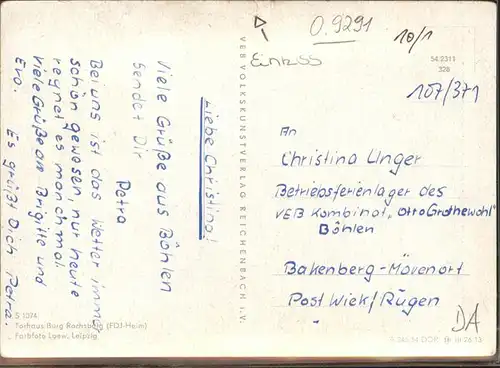 O.9291
10/1
Einzss
54 2311
328
107/371
Liebe Christina!
Viele Grüße aus Böhlen
sendet Dir
Petra
Bei uns ist das Wetter immer
schön gewesen, nur heute
regnet es manchmal.
Viele Grüße an Brigitte und
Evo.
Es grüßt Dich Petra.
VEB VOLKSKUNSTVERLAG REICHENBACH i. V.
An
Christina Unger
Betriebsferienlager des
VEB Kombinat „Otto Grothewohl"
Böhlen
Bakenberg-Mövenort
Post Wiek/Rügen
DA
S 1074
Torhaus Burg Rochsberg (FDJ-Heim)
Farbfoto Loew, Leipzig
DDR